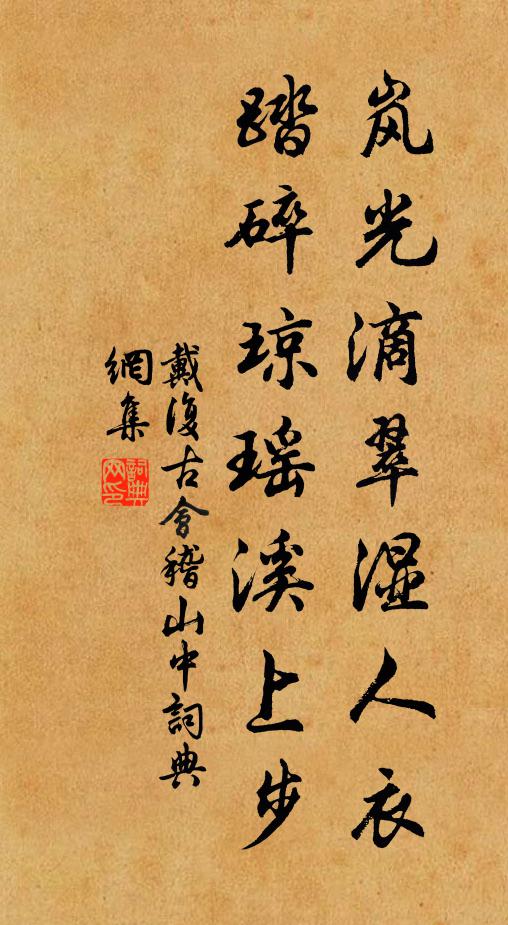 岚光滴翠湿人衣
踏碎琼瑶溪上步
戴復古會稽山中詞典
網集
詞典网印